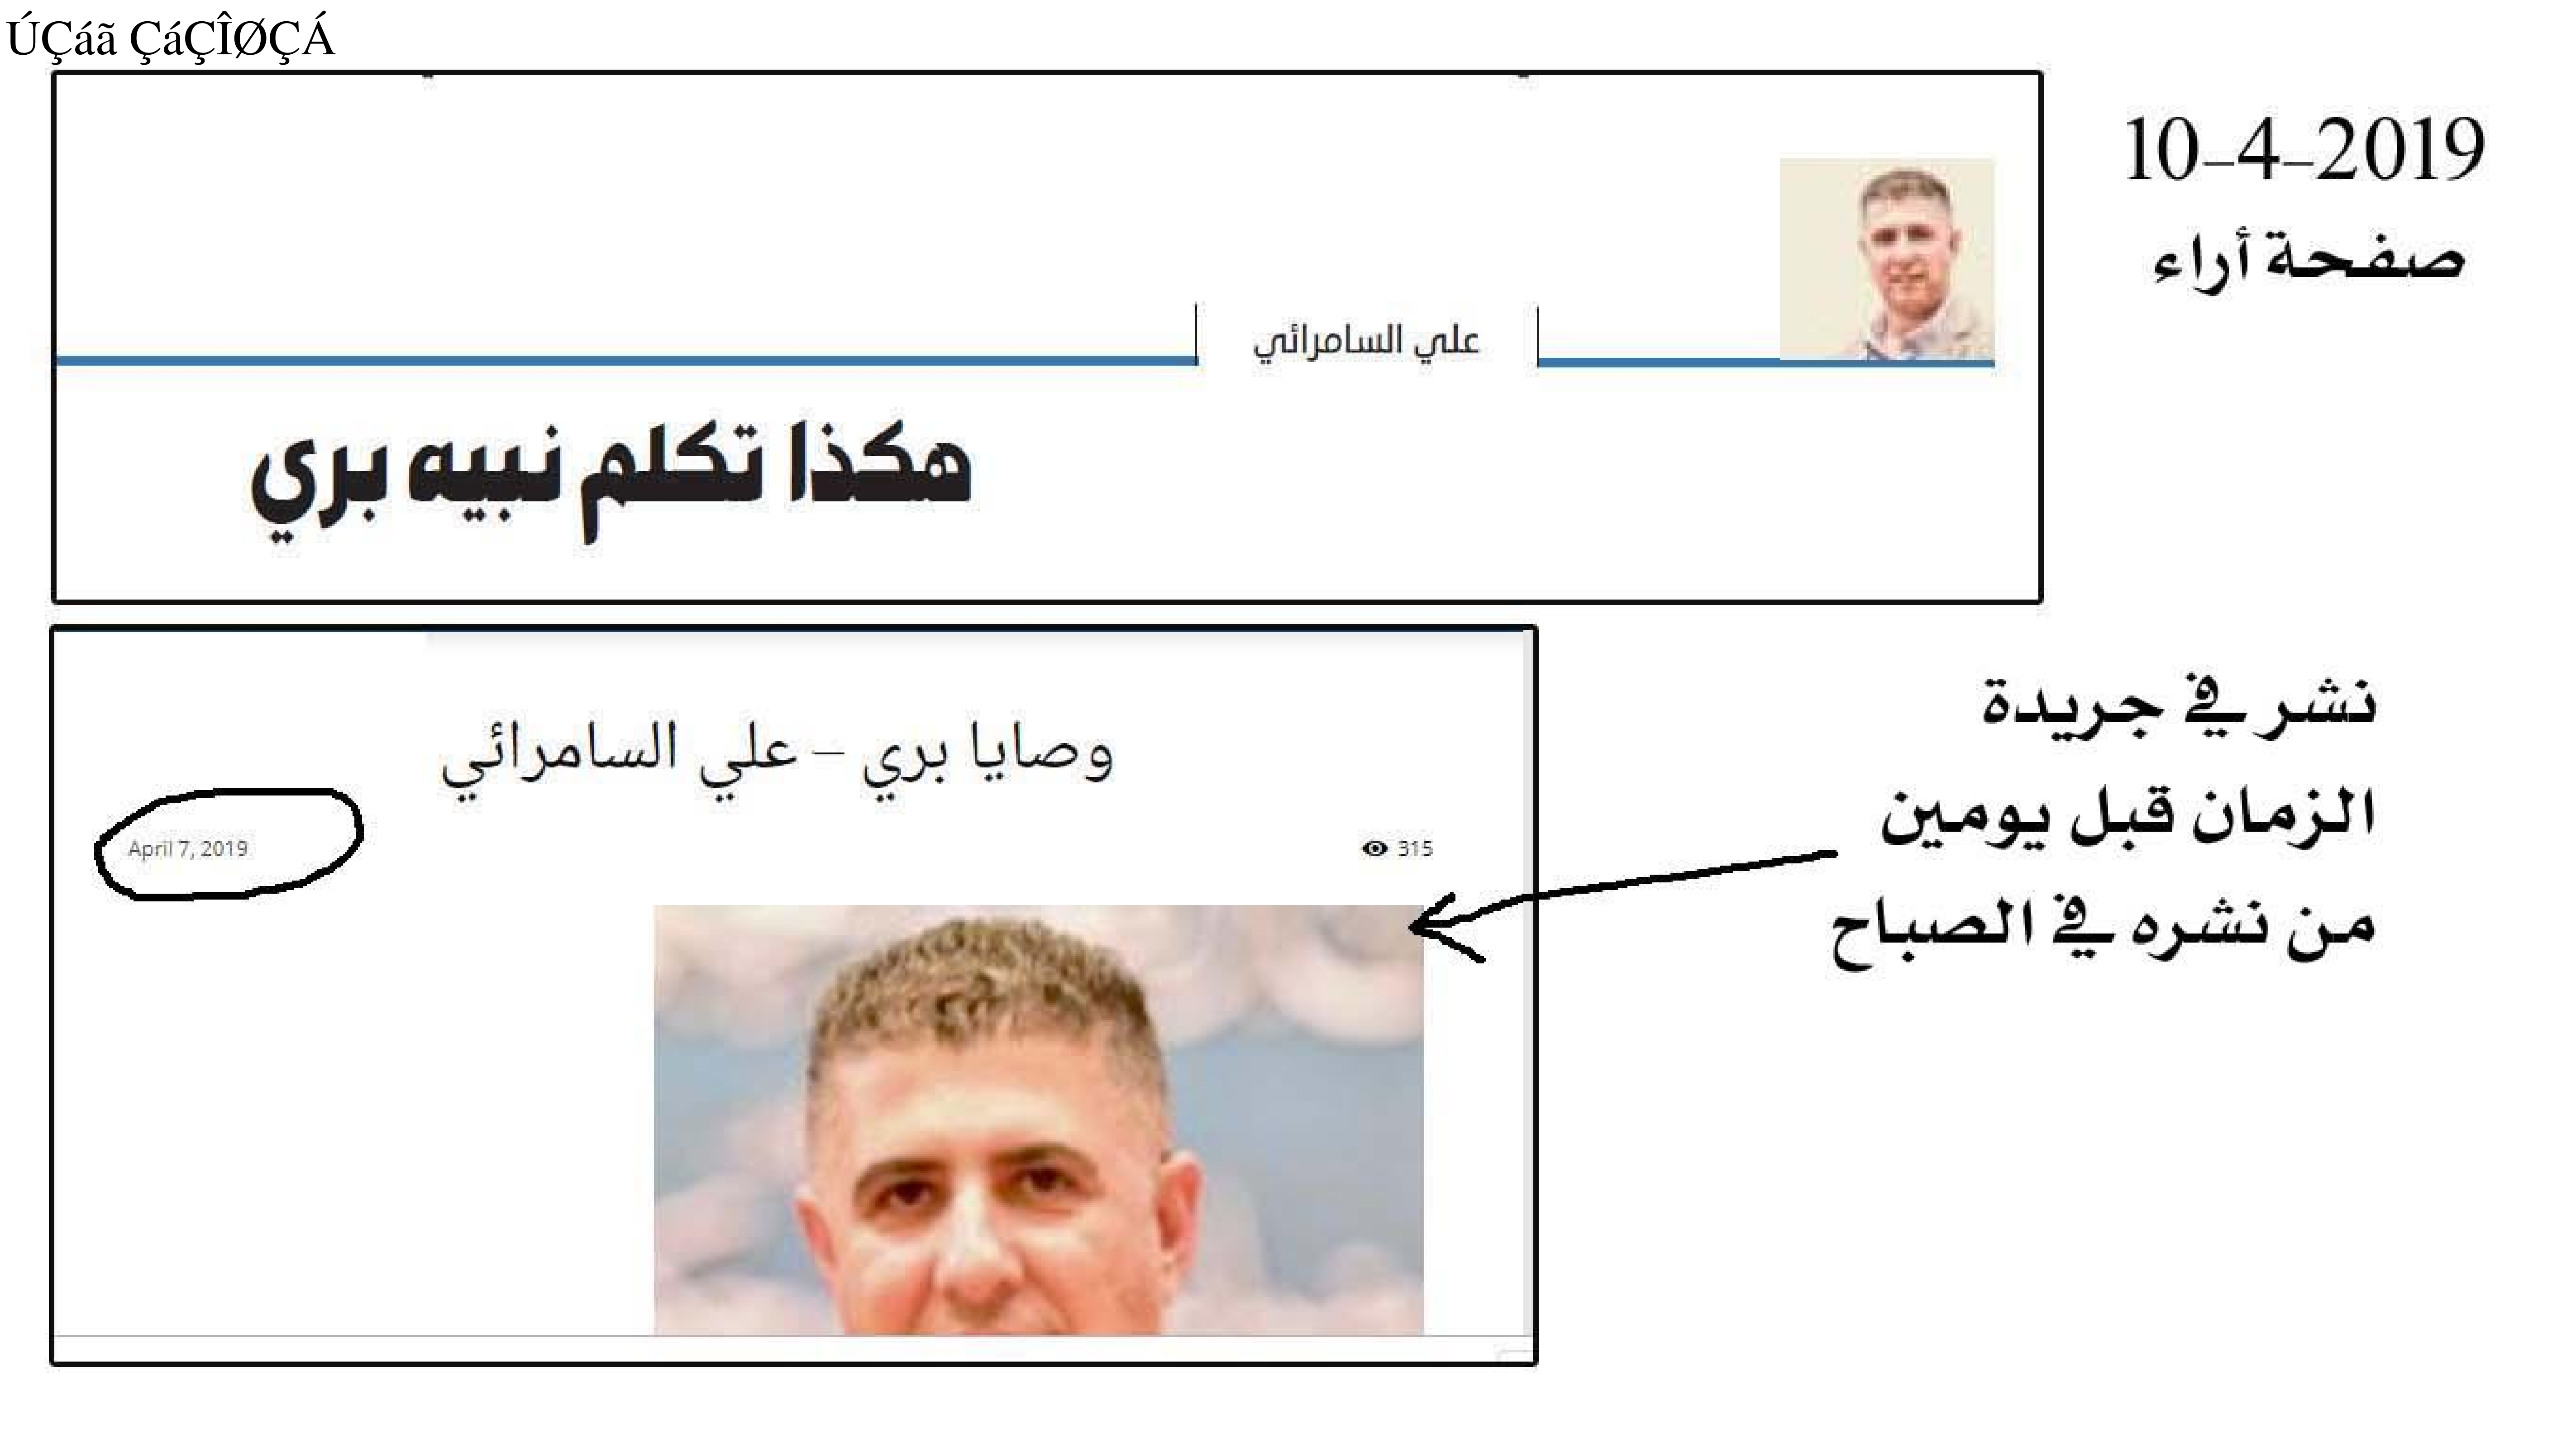 ÚÇáã ÇáÇÎØÇÁ
10-4-2019
صفحة أراء
علي السامرائي
هكذا تكلم نبيه بري
وصايا بري – علي السامرائي
April 7, 2019
315
نشر في جريدة
الزمان قبل يومين
من نشره في الصباح